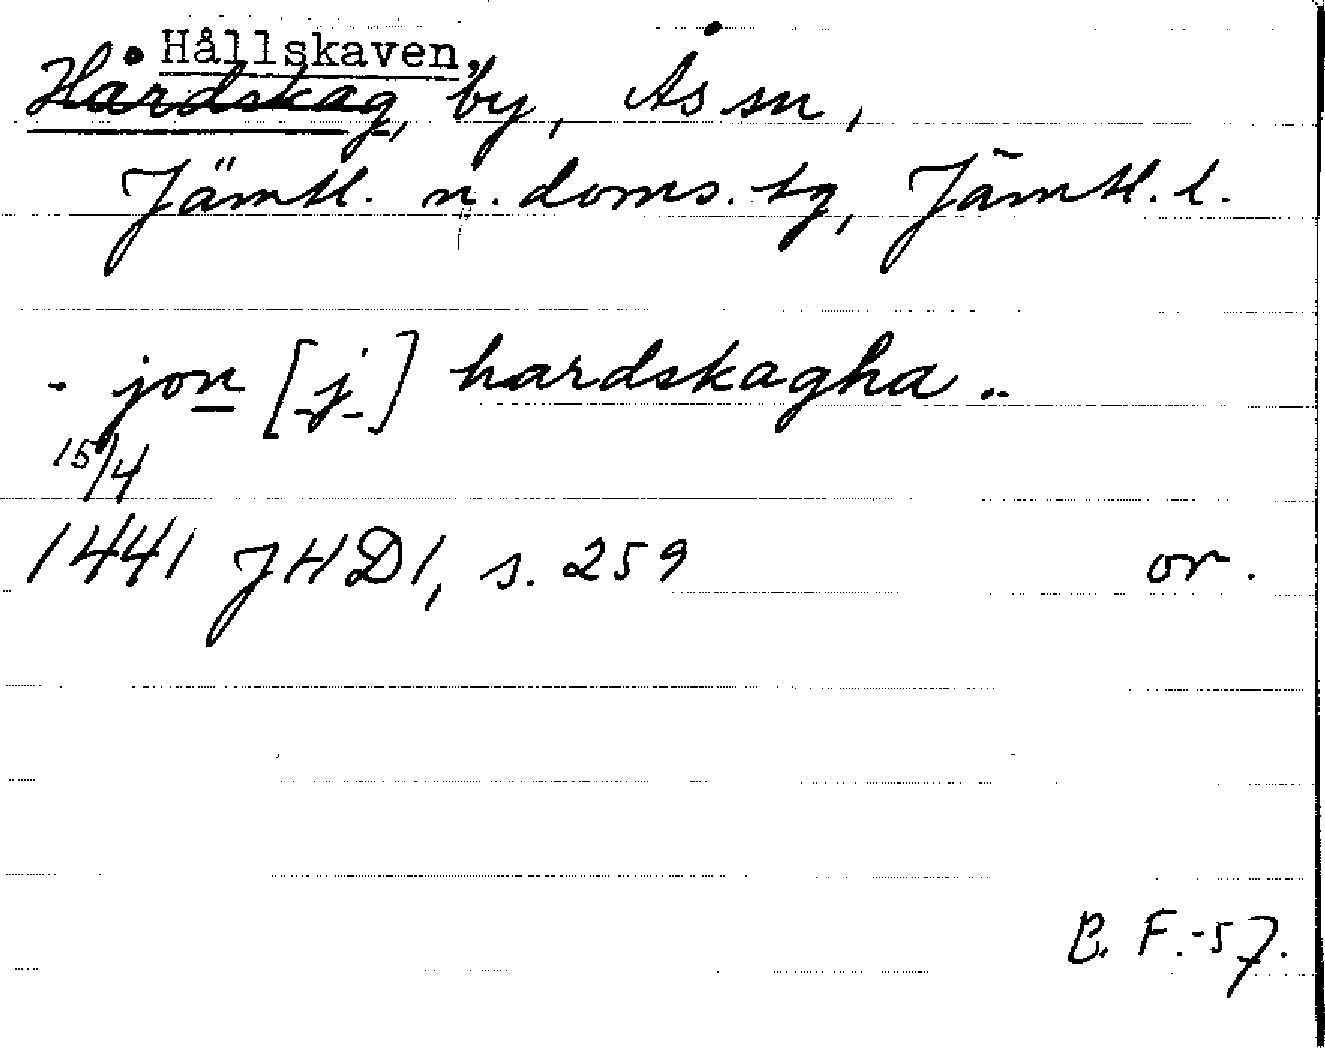 Hållskaven,
Hårdskag, by, Ås sn,
Jämtl. n. doms. tg, Jämtl. l.
- jon [j] hardskagha ..
15/4
1441 JHD1, s. 259 or.
B. F.-57.